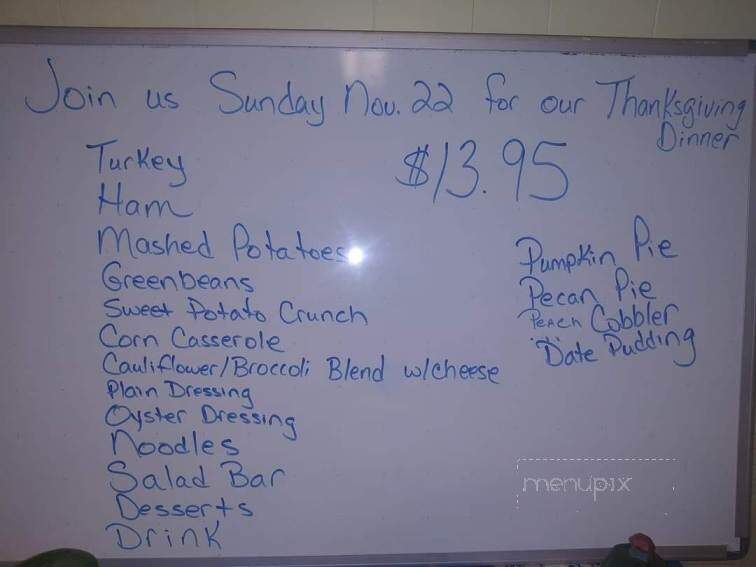 Join us Sunday Nov. 22 for our Thanksgiving
Dinner
$13.95
Turkey
Ham
Mashed Potatoes
Greenbeans
Sweet Potato Crunch
Corn Casserole
Cauliflower/Broccoli Blend w/cheese
Plain Dressing
Oyster Dressing
Noodles
Salad Bar
Desserts
Drink
Pumpkin Pie
Pecan Pie
Peach Cobbler
Date Pudding
menupix